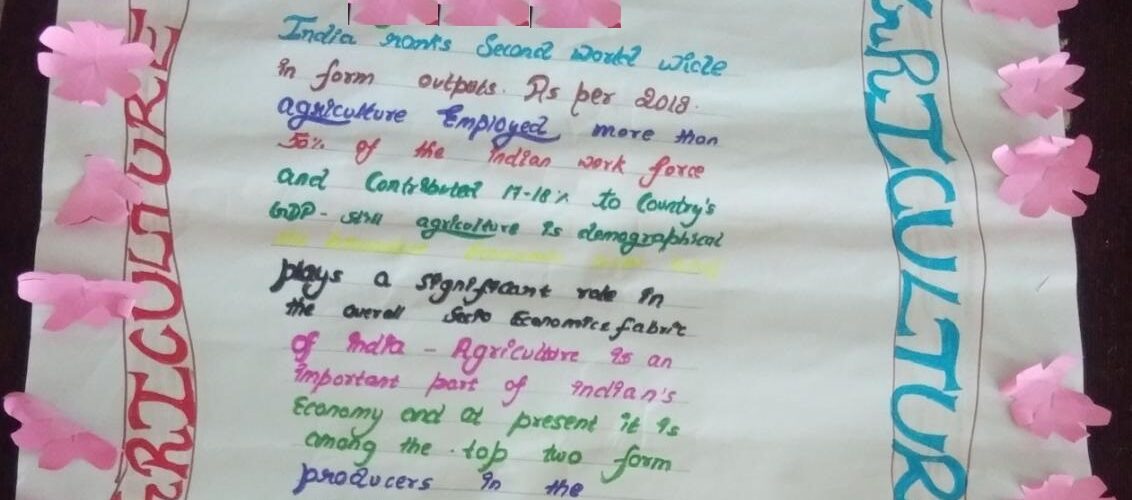 India ranks Second world wide
in form outputs. As per 2018.
agriculture Employed more than
50% of the indian work force
and Contributed 17-18% to Country's
GDP - still agriculture is demographical
plays a significant role in
the overall Socio Economics fabric
of india - Agriculture is an
important part of indian's
Economy and at present it is
among the top two form
producers in the
RICULTURE
RICULTUR